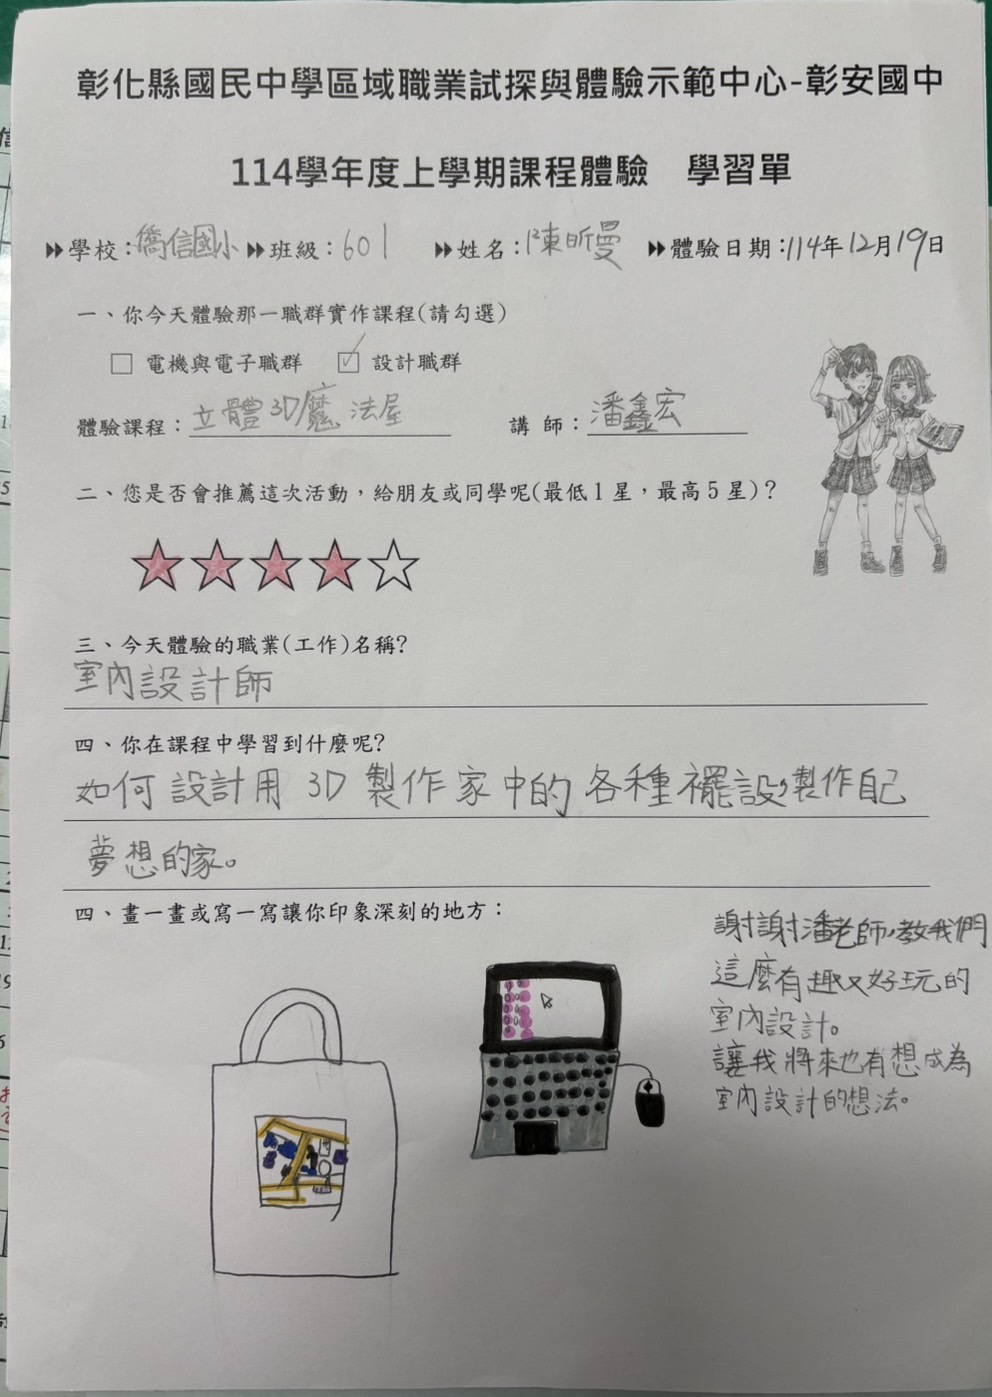 彰化縣國民中學區域職業試探與體驗示範中心-彰安國中
114學年度上學期課程體驗 學習單
學校:僑信國小 班級:601 姓名:陳昕曼 體驗日期:114年12月19日
一、你今天體驗那一職群實作課程(請勾選)
□ 電機與電子職群 ☑ 設計職群
體驗課程:立體3D魔法屋 講 師:潘鑫宏
二、您是否會推薦這次活動，給朋友或同學呢(最低1星，最高5星)?
三、今天體驗的職業(工作)名稱?
室內設計師
四、你在課程中學習到什麼呢?
如何設計用3D製作家中的各種襬設,製作自己
夢想的家。
四、畫一畫或寫一寫讓你印象深刻的地方：
謝謝潘老師,教我們
這麼有趣又好玩的
室內設計。
讓我將來也有想成為
室內設計的想法。